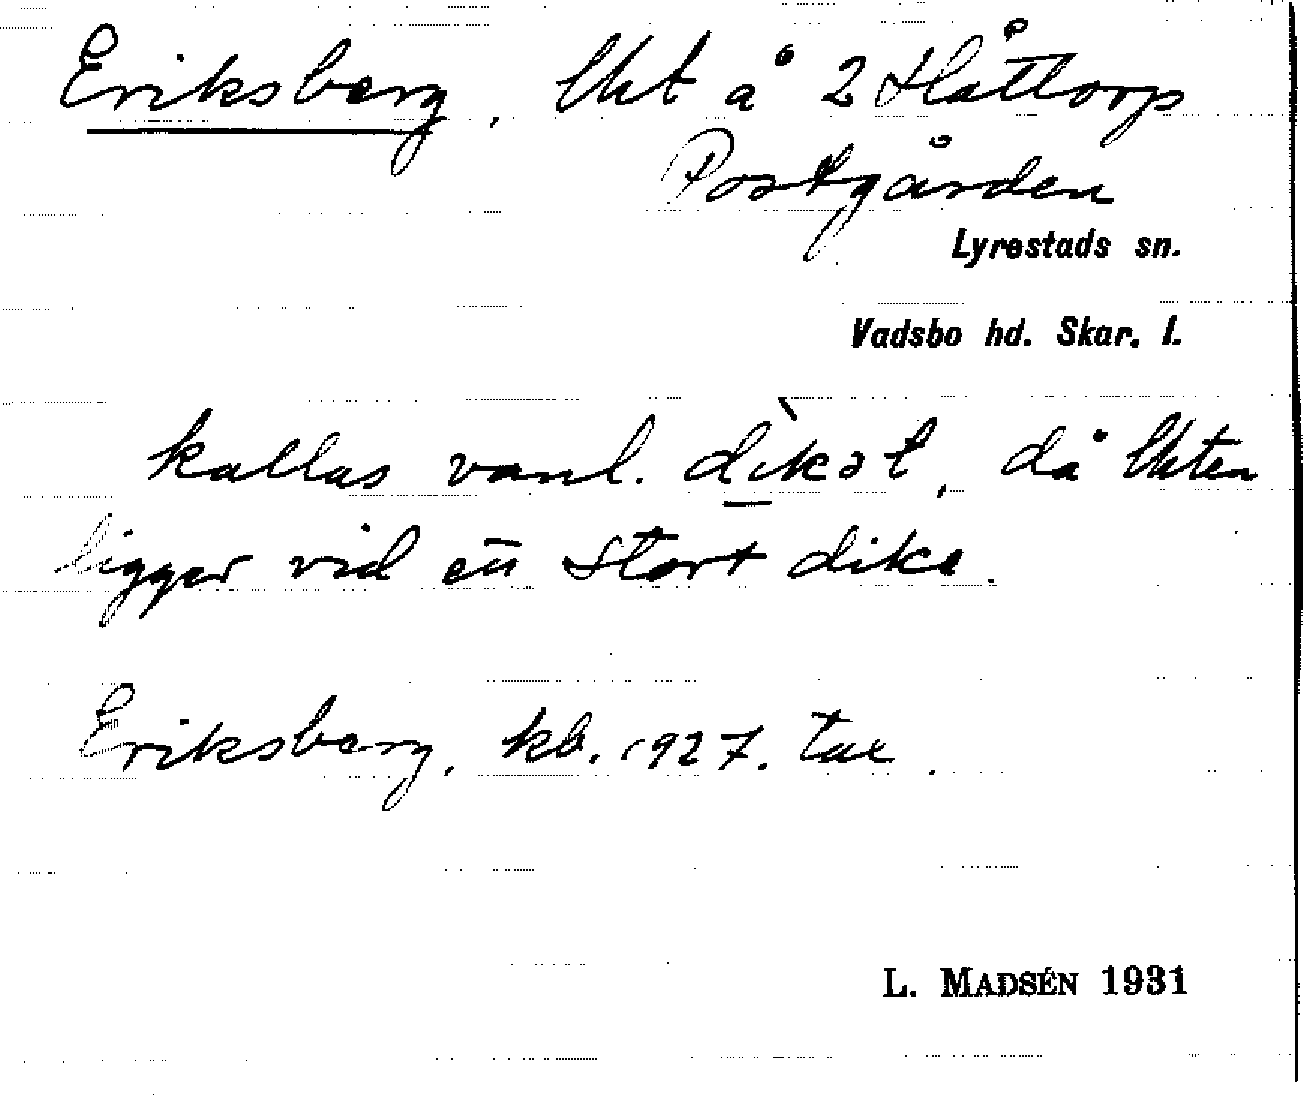 Eriksberg, lht å 2 Håttorp
Postgården
Lyrestads sn.
Vadsbo hd. Skar. l.
kallas vanl. dìkət, då lhten
ligger vid ett stort dike.
Eriksberg, kb. 1927. tax.
L. MADSÉN 1931